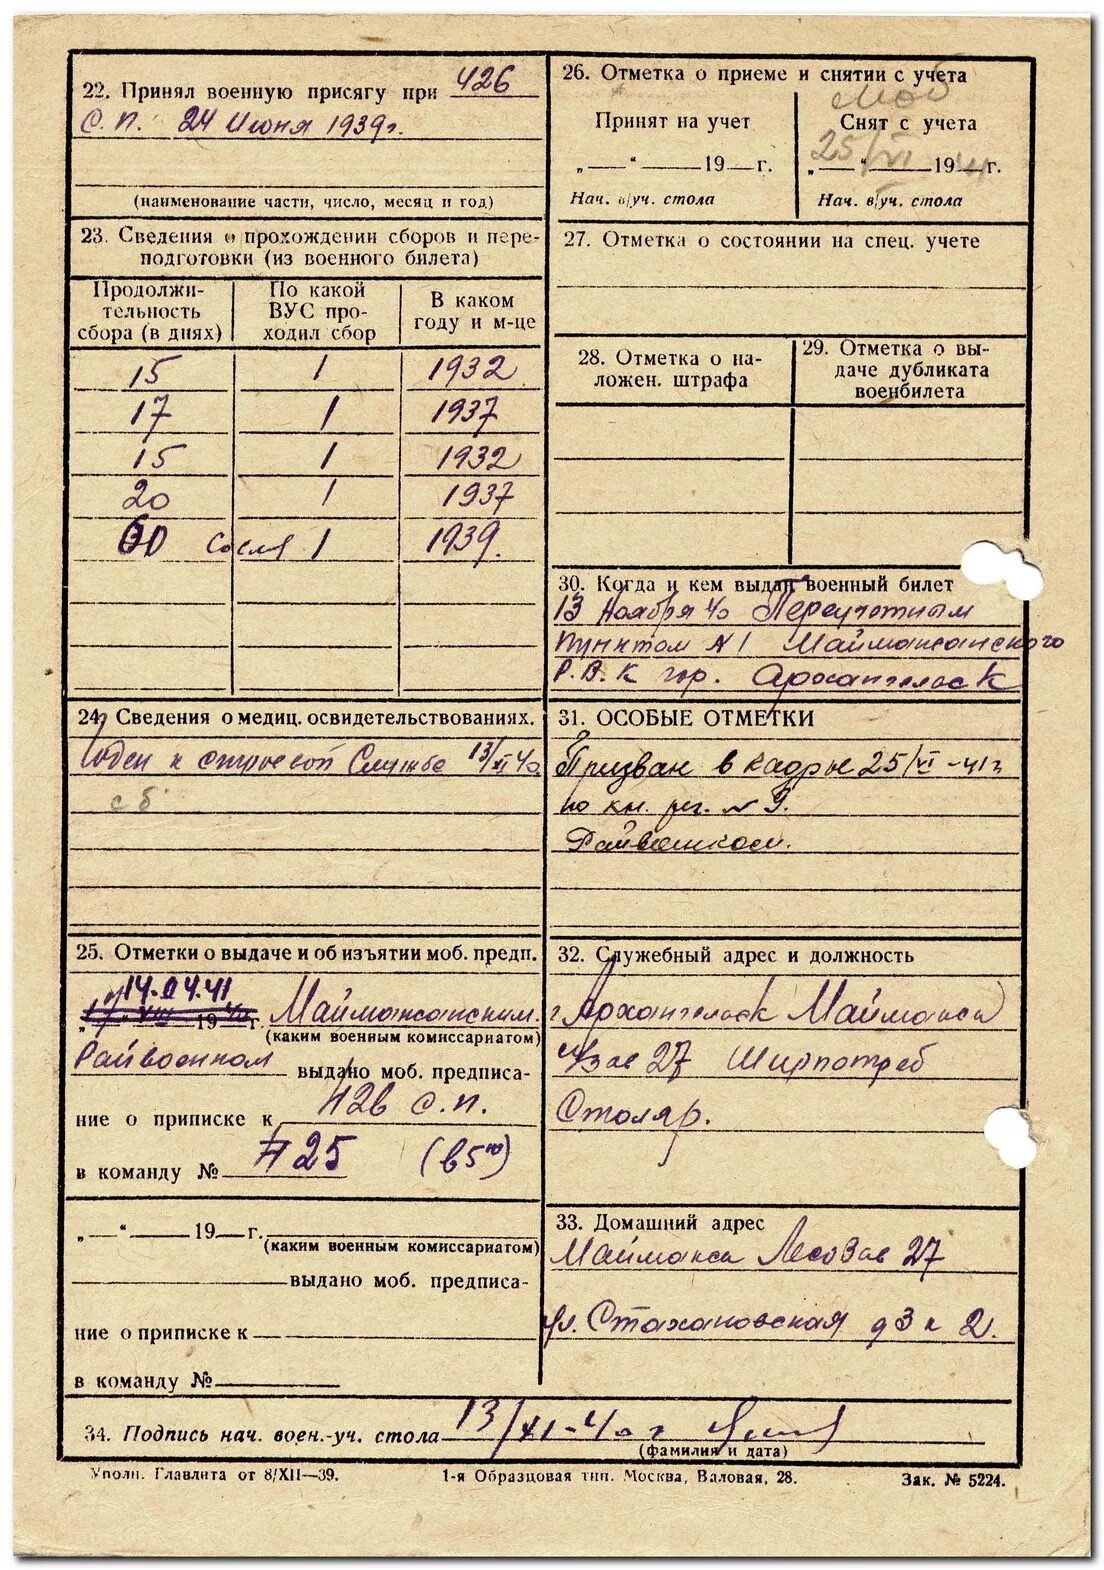 22. Принял военную присягу при 426
С. п. 24 Июня 1939 г.
(наименование части, число, месяц и год)
23. Сведения о прохождении сборов и пере-
подготовки (из военного билета)
Продолжи-
тельность
сбора (в днях)
По какой
ВУС про-
ходил сбор
В каком
году и м-це
15 1 1932
17 1 1937
15 1 1932
20 1 1937
60 1 1939.
24. Сведения о медиц. освидетельствованиях.
Годен к строевой Службе 13/XI 40
сб
25. Отметки о выдаче и об изъятии моб. предп.
14.04.41
„17“ VIII 1940 г. Маймаксанским
(каким военным комиссариатом)
Райвоенком выдано моб. предписа-
ние о приписке к с.п.
в команду № 25
„—“ 19—г.
(каким военным комиссариатом)
выдано моб. предписа-
ние о приписке к
в команду №
26. Отметка о приеме и снятии с учета
Принят на учет
„—“ 19—г.
Нач. в/уч. стола
Моб
Снят с учета
25/VI 1941 г.
Нач. в/уч. стола
27. Отметка о состоянии на спец. учете
28. Отметка о на-
ложен. штрафа
29. Отметка о вы-
даче дубликата
военбилета
30. Когда и кем выдан военный билет
13 Ноября 40 Переучетным
пунктом №1 Маймаксанского
Р.В.К гор. Архангельск
31. ОСОБЫЕ ОТМЕТКИ
Призван в кадры 25/VI-41 г
по кн. рег. № 9.
Райвоенком.
32. Служебный адрес и должность
г. Архангельск Маймакса
л/зав 27 Ширпотреб
Столяр.
33. Домашний адрес
Маймакса Лесозав 27
ул. Стахановская д 3 к 2.
34. Подпись нач. воен.-уч. стола 13/XI-40 г
(фамилия и дата)
Уполн. Главлита от 8/XII—39.
1-я Образцовая тип. Москва, Валовая, 28.
Зак. № 5224.